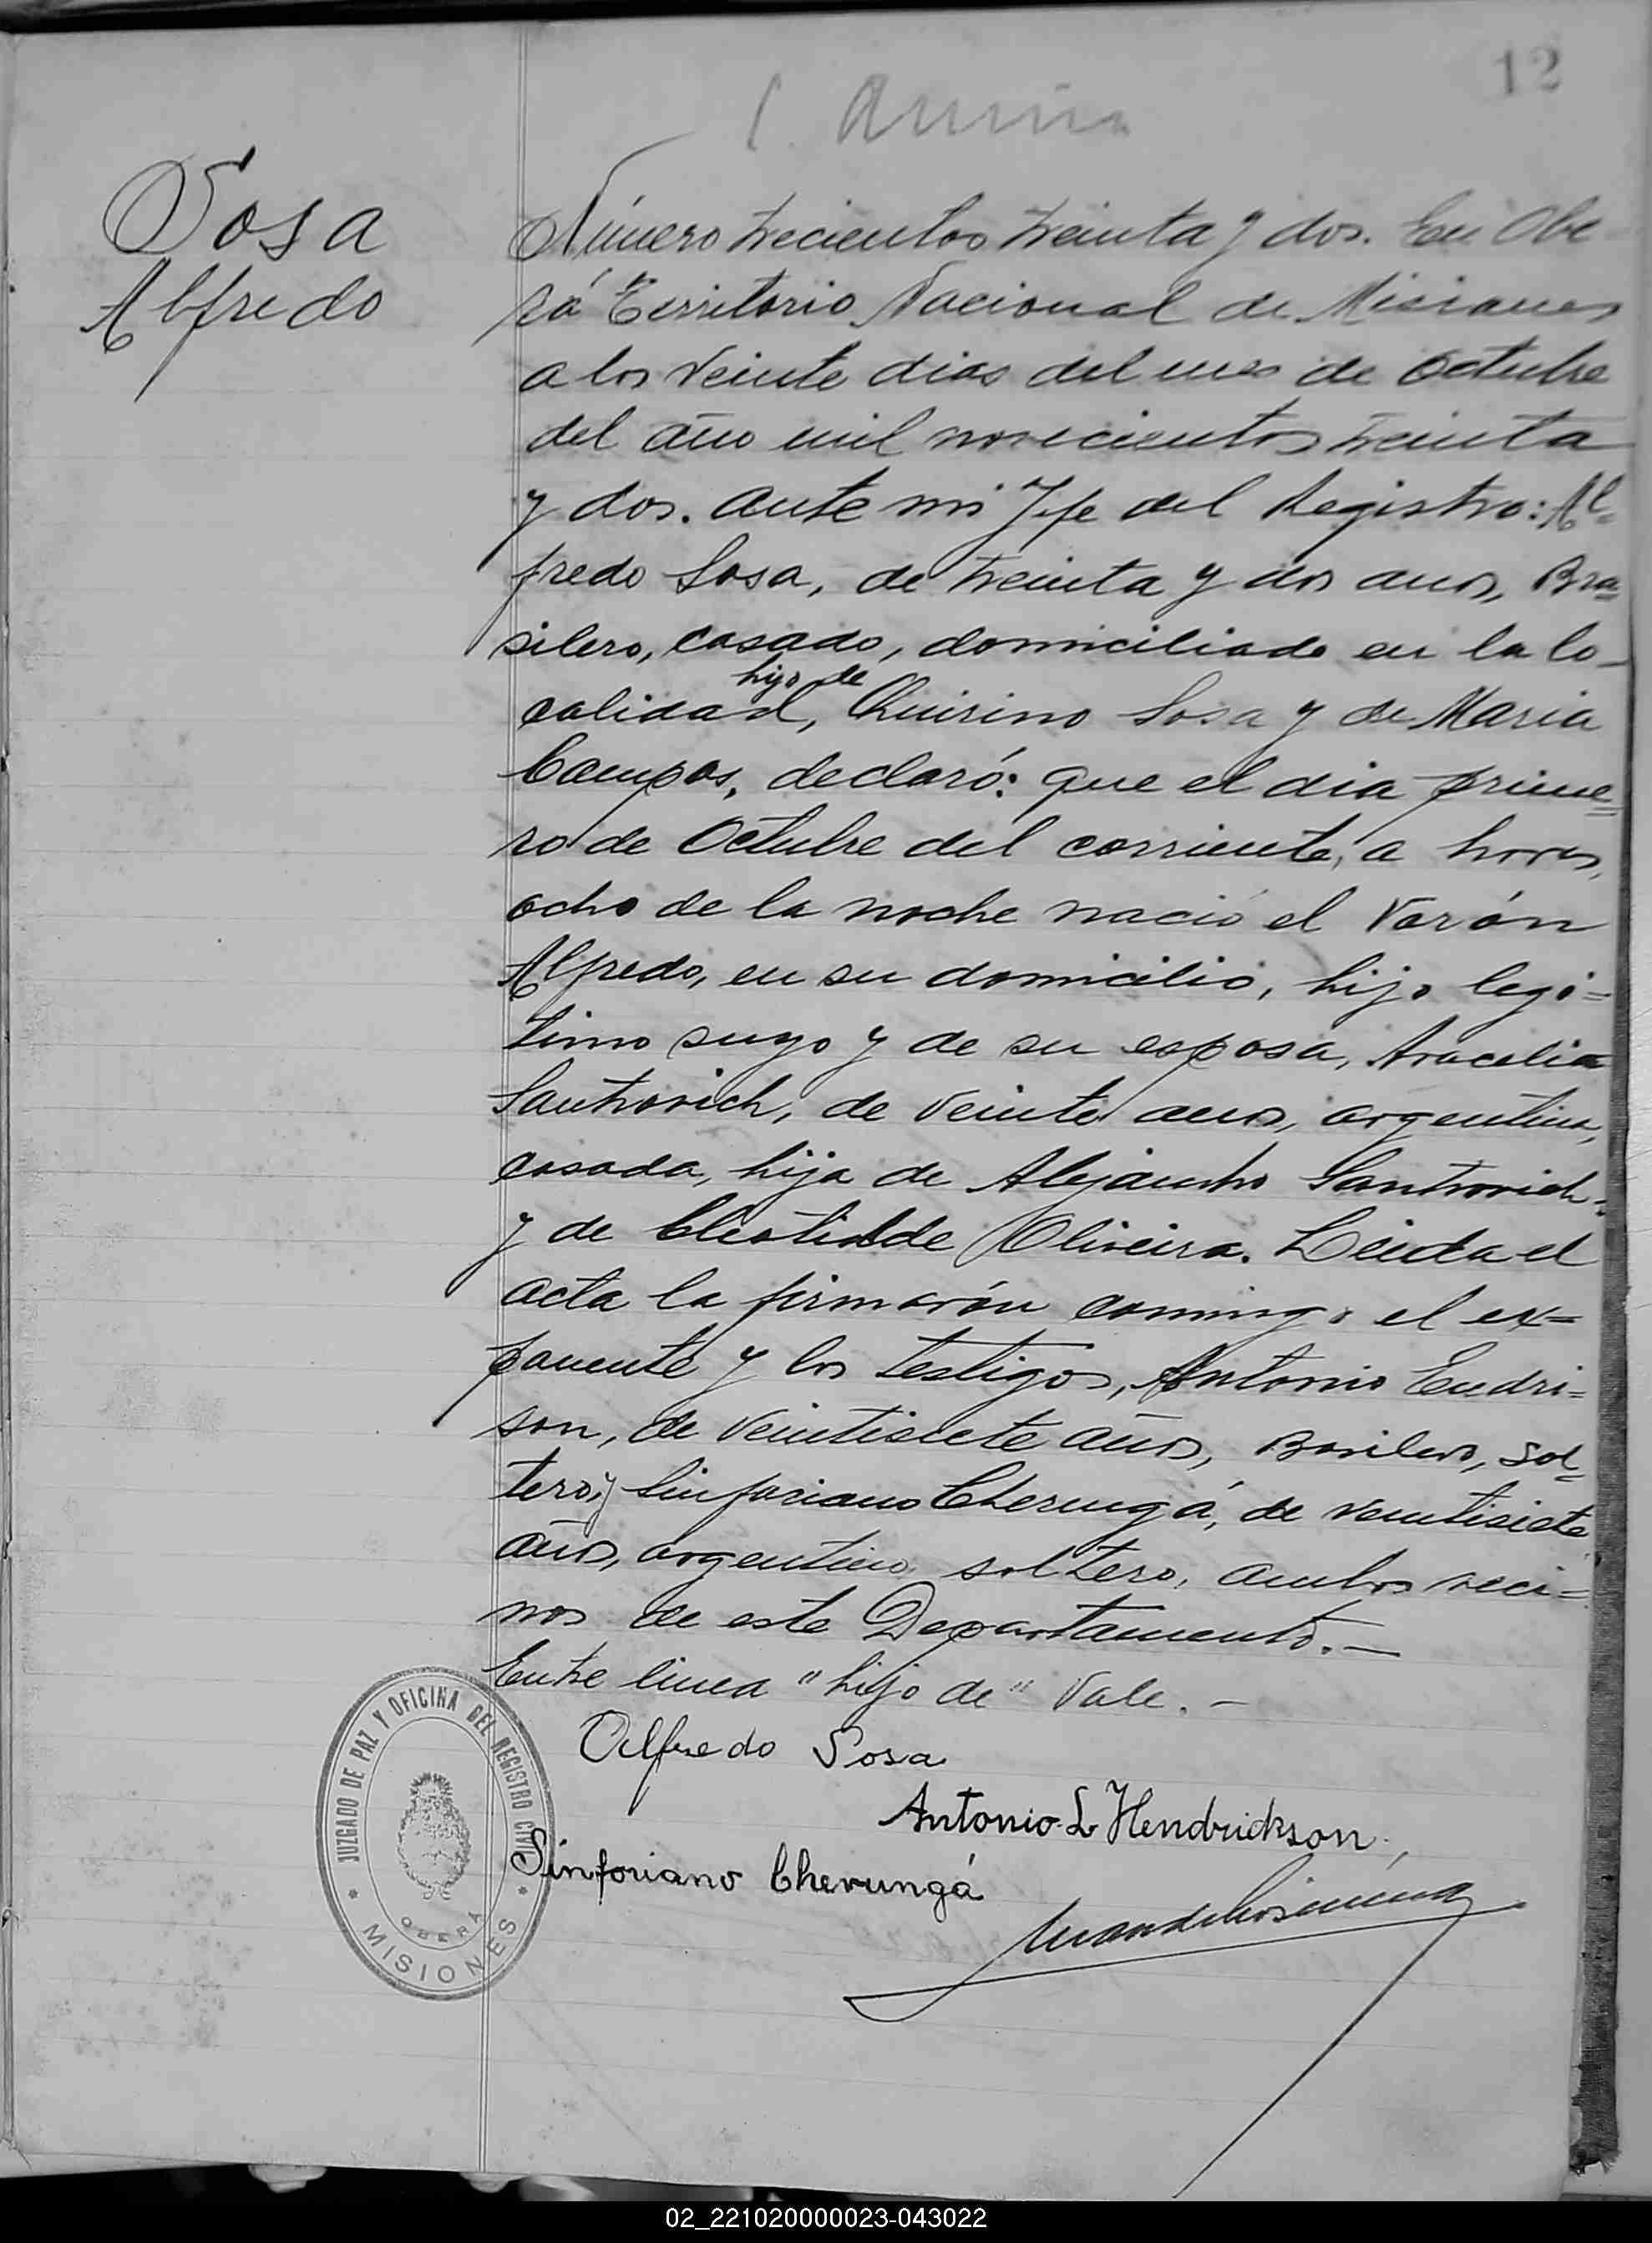 12
Sosa
Alfredo
Número trecientos treinta y dos. En Obe
rá Territorio Nacional de Misiones
a los veinte dias del mes de Octubre
del año mil novecientos treinta
y dos. ante mi Jefe del Registro: Al=
fredo Sosa, de treinta y dos años, Bra=
silero, casado, domiciliado en la lo-
hijo de
calidad, Quirino Sosa y de Maria
Campos, declaró: que el dia prime=
ro de Octubre del corriente, a horas,
ocho de la noche nació el Varón
Alfredo, en su domicilio, hijo legi=
timo suyo y de su esposa, Aracelia
Santrovich, de veinte años, argentina,
casada, hija de Alejandro Santrovich
y de Cleotilde Oliveira. Leida el
acta la firmarón conmigo el ex=
ponente y los testigos, Antonio Endri=
son, de veintisiete años, Brasilero, sol=
tero, y Sinforiano Cherungá, de veintisiete
años, argentino, soltero, ambos veci=
nos de este Departamento.-
Entre linea "hijo de" Vale.-
Alfredo Sosa
Antonio L Hendrickson
Sinforiano Cherungá
JUZGADO DE PAZ Y OFICINA DEL REGISTRO CIVIL
OBERÁ
* MISIONES *
02_221020000023-043022